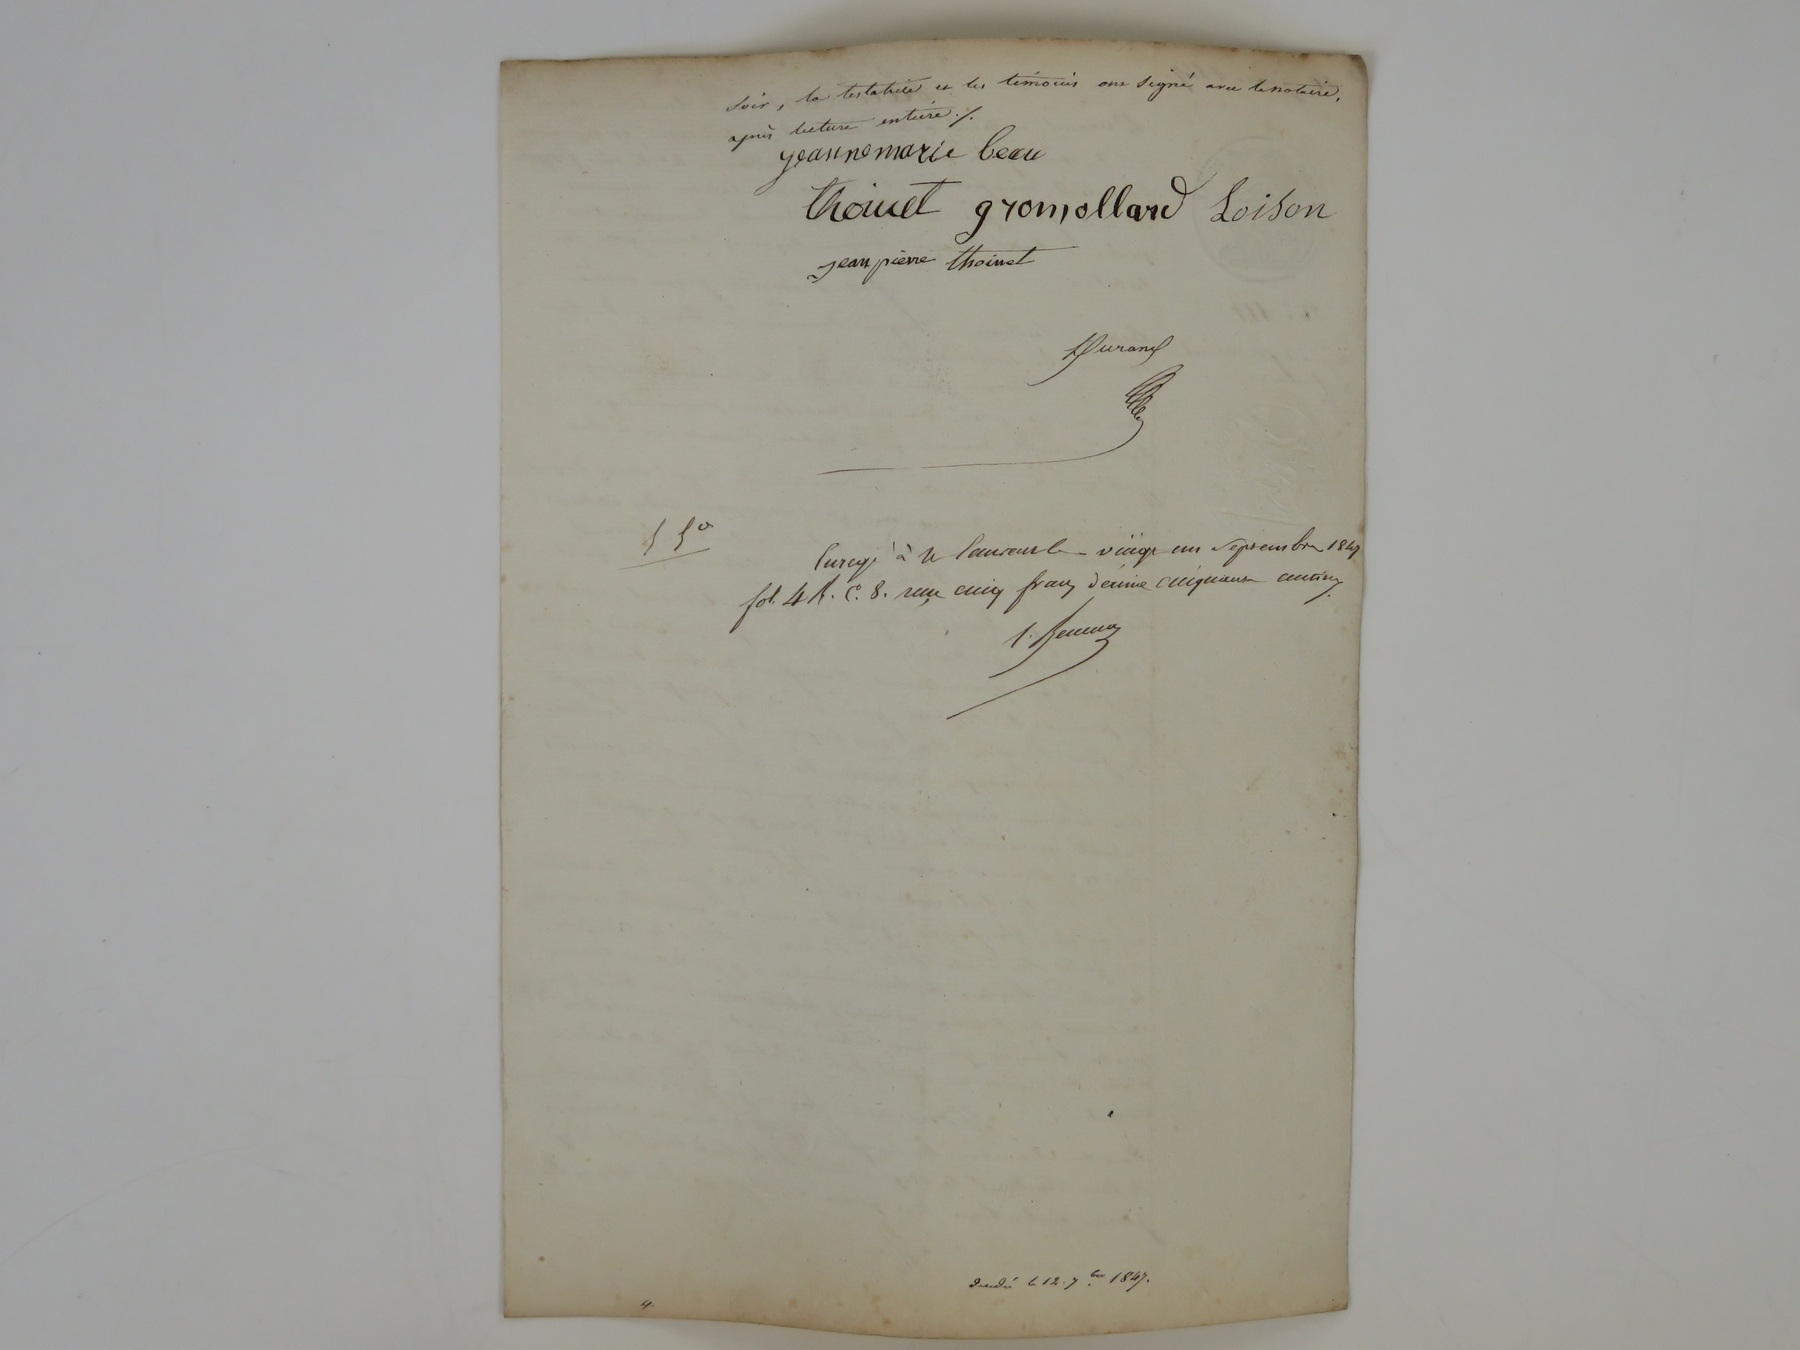 soir, la testatrice et les témoins ont signé avec le notaire,
après lecture entière ./.
jeanne marie beau
thoinet gromollard Loison
jean pierre thoinet
Durand
5 50
Enregé à St Laurent le vingt un septembre 1847
fol. 4 R. C. 8. reçu cinq francs décime cinquante centimes
décédée le 12. 7bre 1847.
4